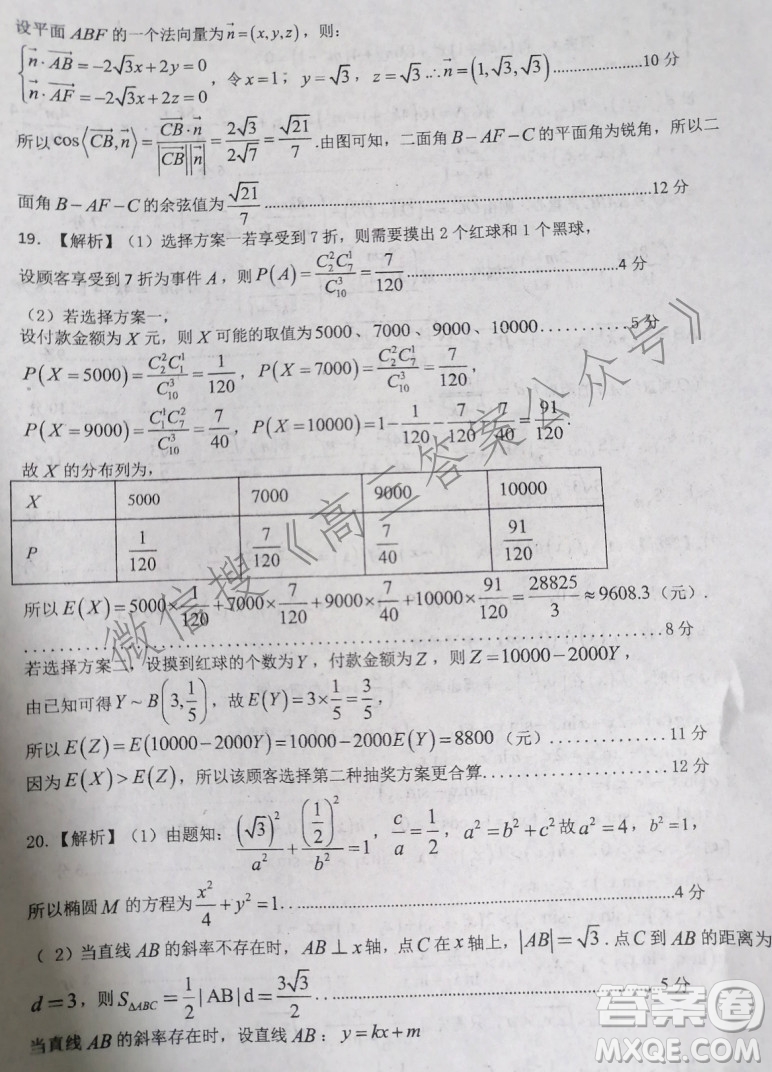 设平面 ABF 的一个法向量为 $\vec{n}=(x,y,z)$，则：
$\begin{cases}\vec{n}\cdot\overrightarrow{AB}=-2\sqrt{3}x+2y=0\\ \vec{n}\cdot\overrightarrow{AF}=-2\sqrt{3}x+2z=0\end{cases}$，令 $x=1$；$y=\sqrt{3}$，$z=\sqrt{3}$ ∴ $\vec{n}=(1,\sqrt{3},\sqrt{3})$ ……………10 分
所以 $\cos\langle\overrightarrow{CB},\vec{n}\rangle=\frac{\overrightarrow{CB}\cdot\vec{n}}{|\overrightarrow{CB}||\vec{n}|}=\frac{2\sqrt{3}}{2\sqrt{7}}=\frac{\sqrt{21}}{7}$.由图可知，二面角 B－AF－C 的平面角为锐角，所以二
面角 B－AF－C 的余弦值为 $\frac{\sqrt{21}}{7}$ ……………12 分
19. 【解析】（1）选择方案一若享受到 7 折，则需要摸出 2 个红球和 1 个黑球，
设顾客享受到 7 折为事件 A，则 $P(A)=\frac{C_2^2C_7^1}{C_{10}^3}=\frac{7}{120}$ ……………4 分
（2）若选择方案一，
设付款金额为 X 元，则 X 可能的取值为 5000、7000、9000、10000 ............5 分
$P(X=5000)=\frac{C_2^2C_1^1}{C_{10}^3}=\frac{1}{120}$，$P(X=7000)=\frac{C_2^2C_7^1}{C_{10}^3}=\frac{7}{120}$，
$P(X=9000)=\frac{C_1^1C_7^2}{C_{10}^3}=\frac{7}{40}$，$P(X=10000)=1-\frac{1}{120}-\frac{7}{120}-\frac{7}{40}=\frac{91}{120}$.
故 X 的分布列为，
X 5000 7000 9000 10000
P $\frac{1}{120}$ $\frac{7}{120}$ $\frac{7}{40}$ $\frac{91}{120}$
所以 $E(X)=5000\times\frac{1}{120}+7000\times\frac{7}{120}+9000\times\frac{7}{40}+10000\times\frac{91}{120}=\frac{28825}{3}\approx9608.3$（元）.
……………8 分
若选择方案二，设摸到红球的个数为 Y，付款金额为 Z，则 $Z=10000-2000Y$，
由已知可得 $Y\sim B\left(3,\frac{1}{5}\right)$，故 $E(Y)=3\times\frac{1}{5}=\frac{3}{5}$，
所以 $E(Z)=E(10000-2000Y)=10000-2000E(Y)=8800$（元）............11 分
因为 $E(X)>E(Z)$，所以该顾客选择第二种抽奖方案更合算............12 分
20. 【解析】（1）由题知：$\frac{(\sqrt{3})^2}{a^2}+\frac{\left(\frac{1}{2}\right)^2}{b^2}=1$，$\frac{c}{a}=\frac{1}{2}$，$a^2=b^2+c^2$ 故 $a^2=4$，$b^2=1$，
所以椭圆 M 的方程为 $\frac{x^2}{4}+y^2=1$ ............4 分
（ 2）当直线 AB 的斜率不存在时，AB⊥x 轴，点 C 在 x 轴上，$|AB|=\sqrt{3}$.点 C 到 AB 的距离为
$d=3$，则 $S_{\Delta ABC}=\frac{1}{2}|AB|d=\frac{3\sqrt{3}}{2}$ ……………5 分
当直线 AB 的斜率存在时，设直线 AB：$y=kx+m$
微信搜《高三答案公众号》
答案卷
MXQE.COM